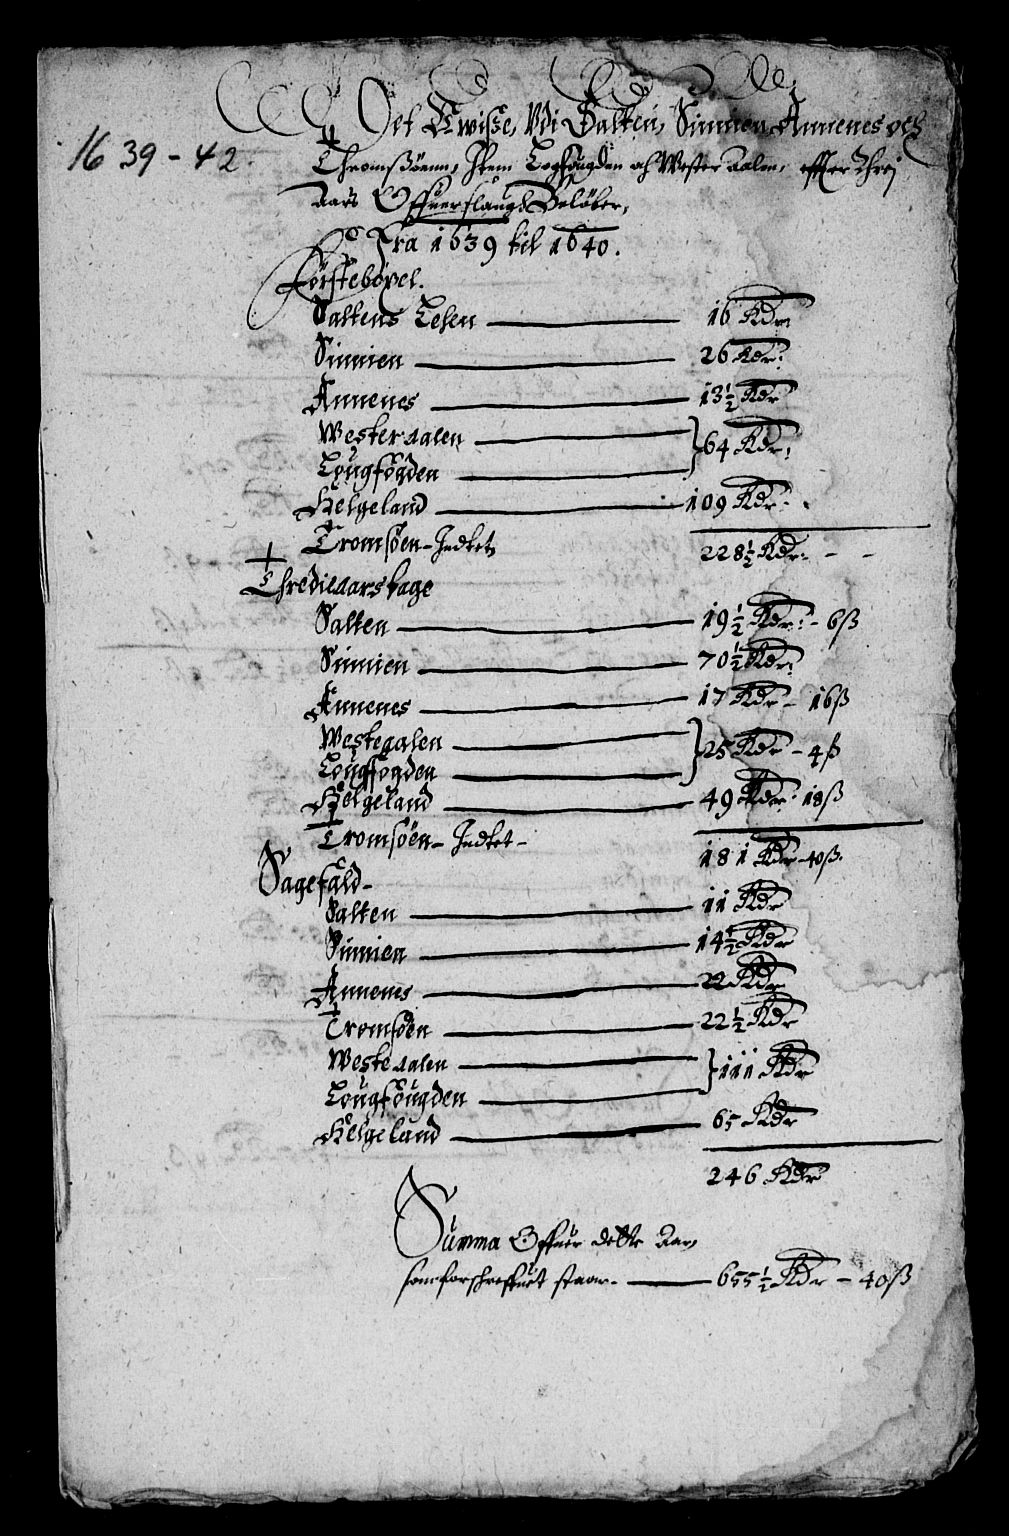 1639-42.
Det Uwisze, Udi Salten, Sinnien Annenes och
Thromszöenn, Item Logfougden aff Wester Aalen, effter Threj
Aars Offuerslaugh Beløber,
Fra 1639 til 1640.
Förstebøxel.
Saltens Lehen 16 Rdr:
Sinnien 26 Rdr:
Annenes 13½ Rdr
Westeraalen
Lougfogden } 64 Rdr:
Helgeland 109 Rdr:
Tromsöen - Indtet 228½ Rdr: - -
Thredieaarstage
Salten 19½ Rdr: - 6 ß
Sinnien 70½ Rdr:
Annenes 17 Rdr - 16 ß
Westeraalen
Lougfogden } 25 Rdr - 4 ß
Helgeland 49 Rdr: 18 ß
Tromsöen - Indtet - 181 Rdr - 40 ß.
Sagefald -
Salten 11 Rdr
Sinnien 14½ Rdr
Annenes 22 Rdr
Tromsöen 22½ Rdr
Westeraalen
Lougfougden } 111 Rdr
Helgeland 65 Rdr
246 Rdr
Summa Offuer dette Aar,
som forschreffuet staar. 655½ Rdr - 40 ß